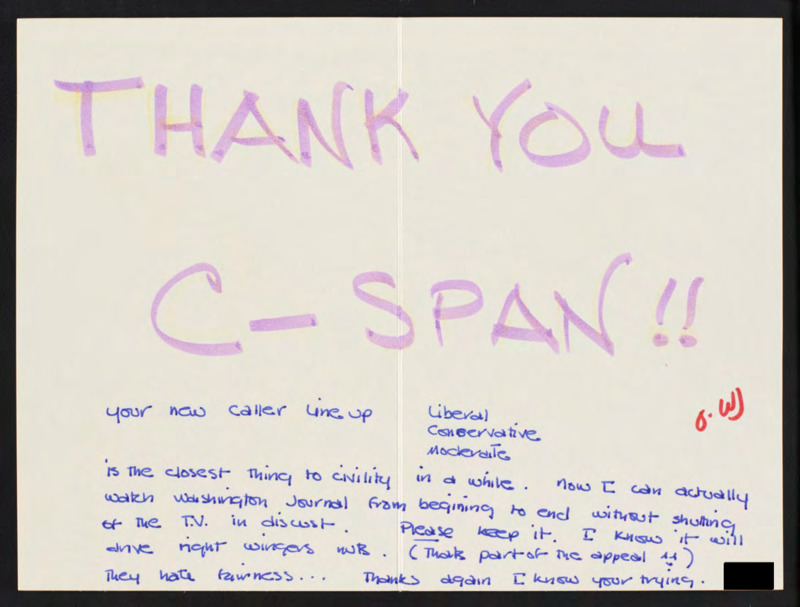 THANK YOU
C-SPAN!!
your new caller line up Liberal
Conservative
moderate
is the closest thing to civility in a while. now I can actually
watch Washington Journal from begining to end without shutting
of the T.V. in discust. Please keep it. I know it will
drive right wingers nuts. (Thats part of the appeal !!)
They hate fairness... Thanks again I know your trying.